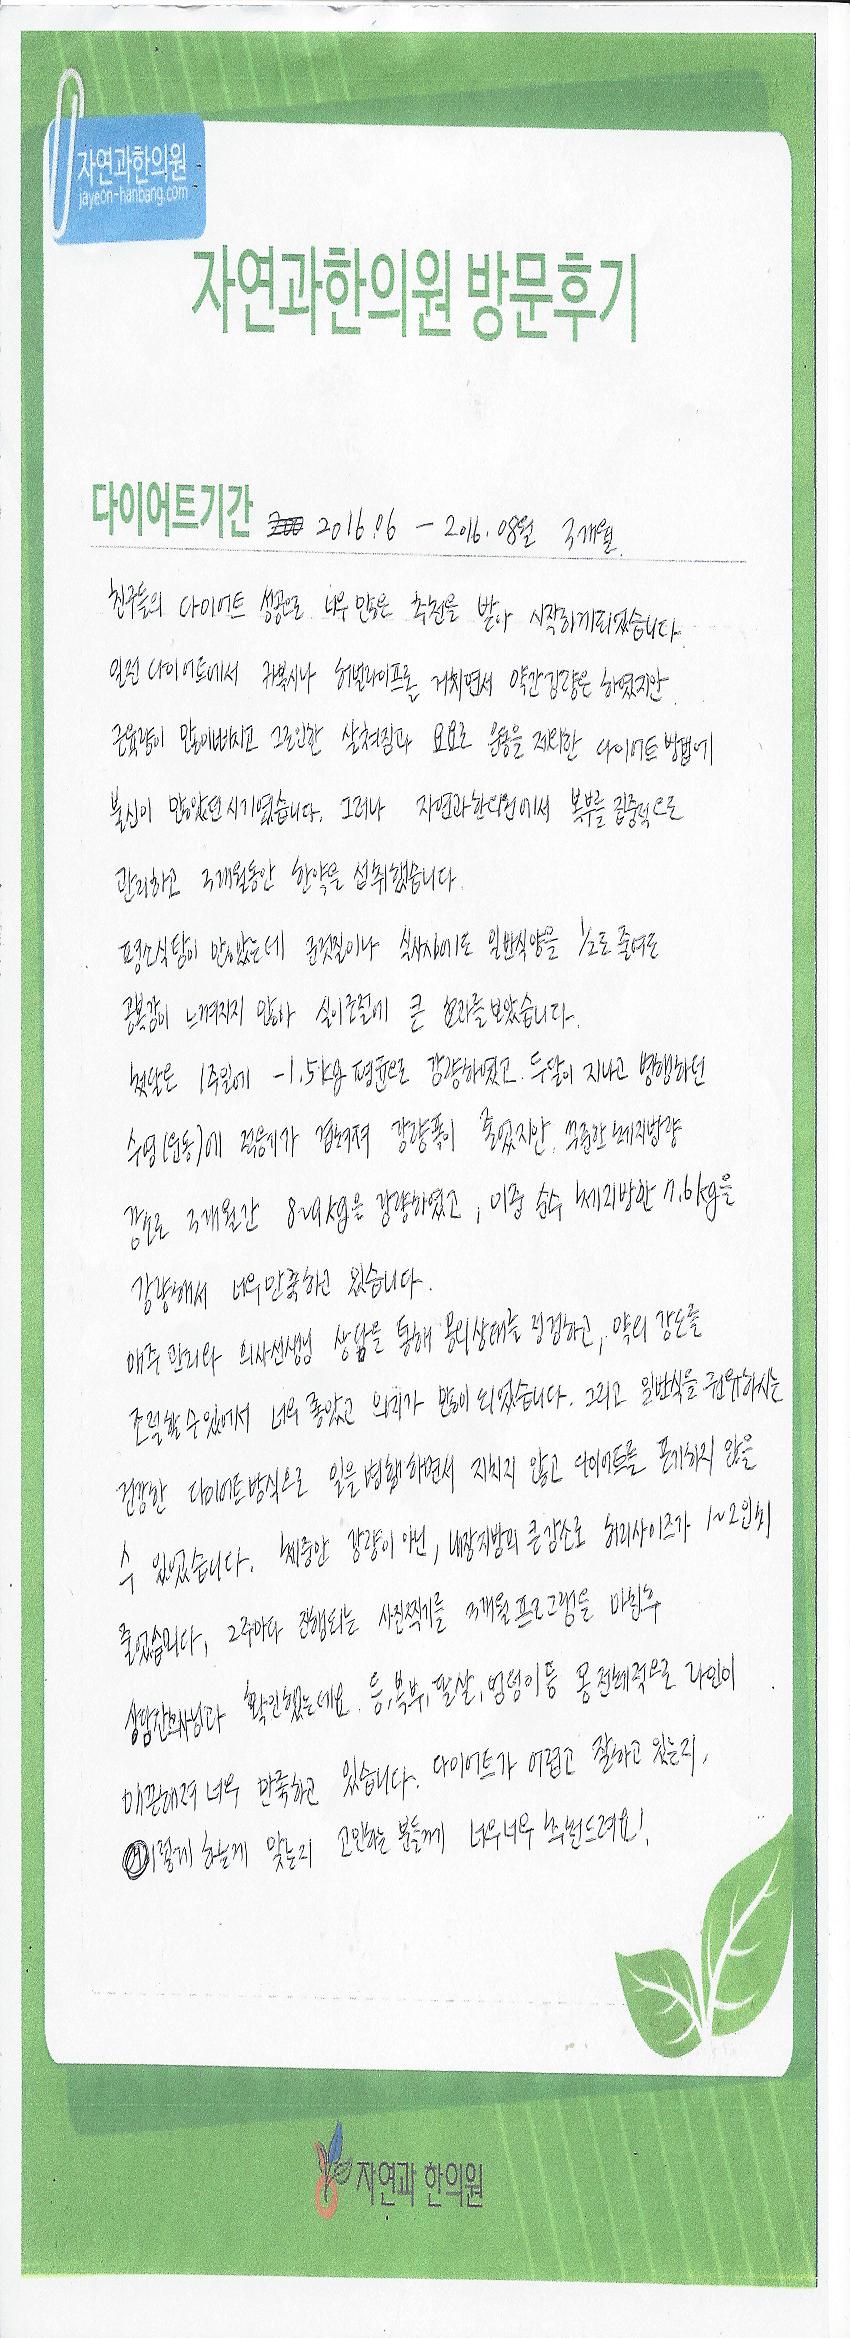 자연과한의원
jayeon-hanbang.com
자연과한의원 방문후기
다이어트기간 2016.06 - 2016.08월 3개월
친구들의 다이어트 성공으로 너무 많은 추천을 받아 시작하게되었습니다.
일전 다이어트에서 쥬비시나 허벌라이프를 거치면서 약간감량은 하였지만
근육량이 많이빠지고 그로인한 살쳐짐과 요요로 운동을 제외한 다이어트 방법에
불신이 많았던시기였습니다. 그러나 자연과한의원에서 복부를 집중적으로
관리하고 3개월동안 한약을 섭취했습니다.
평소식탐이 많았는데 군것질이나 식사시에도 일반식양을 1/2로 줄여도
공복감이 느껴지지 않아 식이조절에 큰 효과를보았습니다.
첫달은 1주일에 -1.5kg 평균으로 감량하였고. 두달이 지나고 병행하던
수영(운동)에 적응기가 겹쳐져 감량폭이 줄었지만 꾸준한 체지방량
감소로 3개월간 8~9kg을 감량하였고, 이중 순수 체지방만 7.6kg을
감량해서 너무만족하고 있습니다.
매주 관리와 의사선생님 상담을 통해 몸의상태를 점검하고, 약의 강도를
조절할수있어서 너무 좋았고 의지가 많이 되었습니다. 그리고 일반식을 권유하시는
건강한 다이어트방식으로 일을병행하면서 지치지 않고 다이어트를 포기하지 않을
수 있었습니다. 체중만 감량이 아닌, 내장지방의 큰감소로 허리사이즈가 1~2인치
줄었습니다, 2주마다 진행되는 사진찍기를 3개월프로그램을 마친후
상담간호사님과 확인했는데요. 등,복부,팔살,엉덩이등 몸 전체적으로 라인이
매끈해져 너무 만족하고 있습니다. 다이어트가 어렵고 잘하고 있는지,
이렇게 하는게 맞는지 고민하는 분들께 너무너무 추천드려요!
자연과 한의원